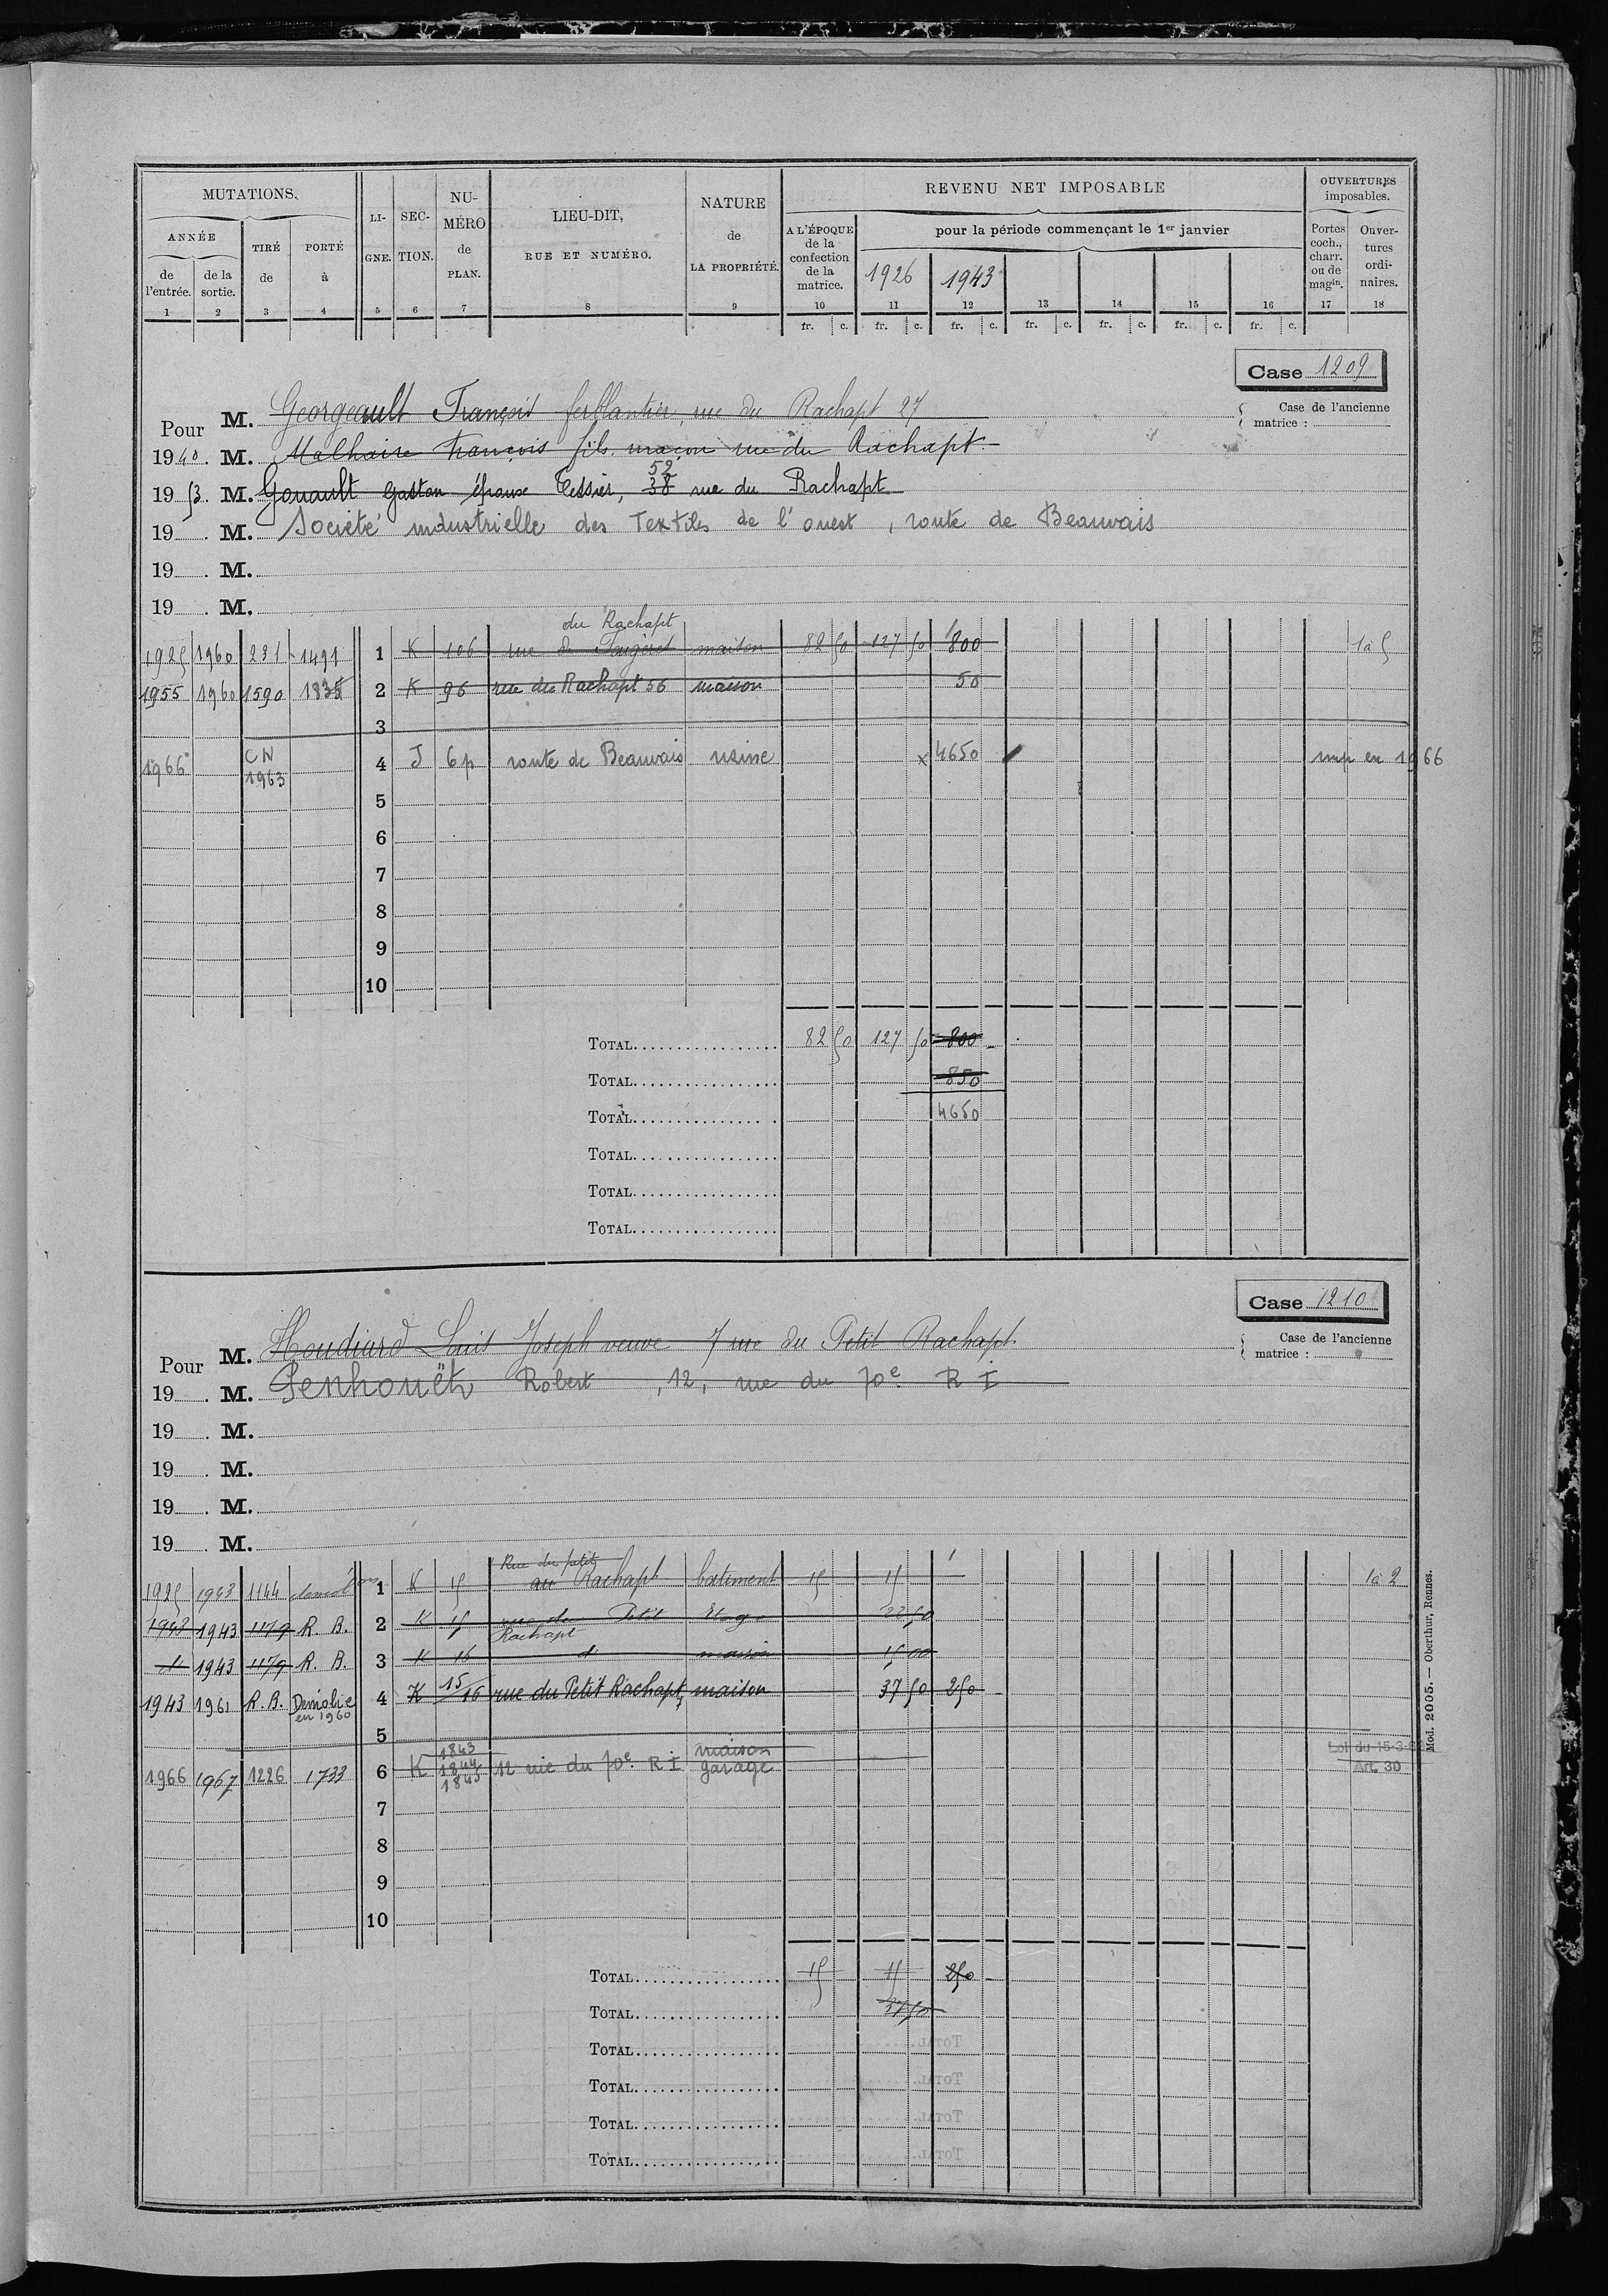 MUTATIONS.
ANNÉE
de l'entrée.
de la sortie.
TIRÉ de
PORTÉ à
LIGNE.
SECTION.
NUMÉRO de PLAN.
LIEU-DIT,
RUE ET NUMÉRO.
NATURE de LA PROPRIÉTÉ.
REVENU NET IMPOSABLE
A L'ÉPOQUE de la confection de la matrice.
pour la période commençant le 1er janvier
1926 1943
OUVERTURES imposables.
Portes coch., charr. ou de magin.
Ouvertures ordinaires.
1 2 3 4 5 6 7 8 9 10 11 12 13 14 15 16 17 18
fr. c. fr. c. fr. c. fr. c. fr. c. fr. c. fr. c.
Case 1209
Case de l'ancienne matrice :
Pour M. Georgeault François ferblantier, rue du Rachapt 27
1940. M. Malhaire François fils, maçon rue du Rachapt
52
19 53 M. Gouault Gaston épouse Tessier, 38 rue du Rachapt
19 . M. Société industrielle des Textiles de l'ouest, route de Beauvais
19 . M.
19 . M.
du Rachapt
1925 1960 231 1491 1 K 106 rue de maison 82 50 127 50 800 1à5
1955 1960 1590 1835 2 K 96 rue du Rachapt 56 maison 50
3
1966 CN 1963 4 J 6p route de Beauvais usine x 4650 imp en 1966
5
6
7
8
9
10
TOTAL 82 50 127 50 800
TOTAL 850
TOTAL 4650
TOTAL
TOTAL
TOTAL
Case 1210
Case de l'ancienne matrice :
Pour M. Houdiard Louis Joseph veuve 7 rue du Petit Rachapt
19 . M. Penhouët Robert, 12, rue du 70e R I
19 . M.
19 . M.
19 . M.
19 . M.
Rue du petit
1925 1943 1144 1 K 15 au Rachapt batiment 15 15 1à2
1943 1943 1179 R. B. 2 K 15 rue du Petit Rachapt Etage 22 50
d 1943 1179 R. B. 3 K 16 d maison 15 00
1943 1961 R.B. Démolie en 1960 4 K 15/16 rue du Petit Rachapt, maison 37 50 250
5
1966 1967 1226 1733 6 K 1843 1844 1845 12 rue du 70e R I maison garage
Loi du 15-3-63
Art. 30
7
8
9
10
TOTAL 15 15 250
TOTAL 37 50
TOTAL
TOTAL
TOTAL
TOTAL
Mod. 2005. — Oberthur, Rennes.